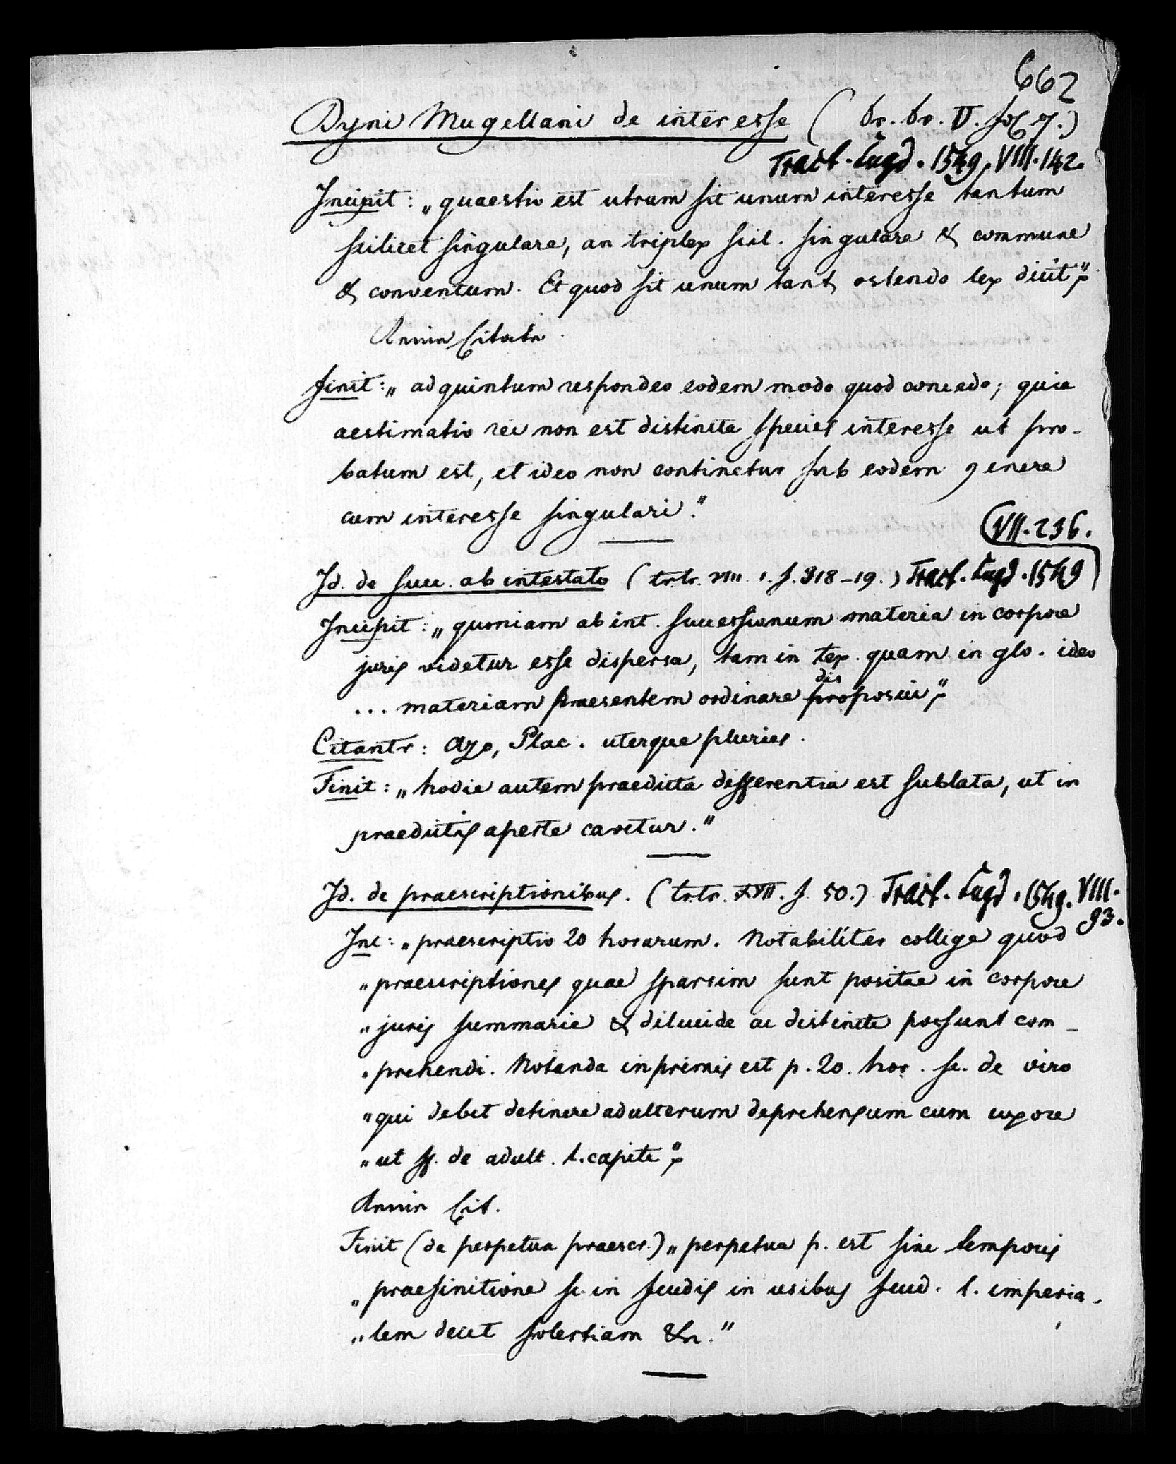 662
Dyni Mugellani de interesse (tr. tr. V. fol 7.)
Tract. Lugd. 1549, VIII. 142.
Incipit: „quaestio est utrum sit unum interesse tantum
scilicet singulare, an triplex scil. singulare & commune
& conventum. Et quod sit unum tant. ostendo lex dicit“;
Keine Citate.
Finit: „ad quintum respondeo eodem modo quod concedo; quia
aestimatio rei non est distincta species interesse ut pro-
batum est, et ideo non continetur sub eodem genere
cum interesse singulari.“
VII. 236.
Id. de succ. ab intestato (tr. tr. VIII. 1. f. 318-19.) Tract. Lugd. 1549
Incipit: „quoniam ab int. successionum materia in corpore
juris videtur esse dispersa, tam in tex. quam in glo. ideo
... materiam praesentem ordinare proposui“;
dis
Citantr: Azo, Plac. uterque pluries.
Finit: „hodie autem praedicta differentia est sublata, ut in
praedictis aperte cavetur.“
Id. de praescriptionibus. (tr. tr. XVII. f. 50.) Tract. Lugd. 1549. VIII.
93.
Inc: „praescriptio 20 horarum. Notabiliter collige quod
„praescriptiones quae sparsim sunt positae in corpore
„juris summarie & dilucide ac distincte possunt com-
„prehendi. Notanda inprimis est p. 20. hor. sc. de viro
„qui debet detinere adulterum deprehensum cum uxore
„ut ff. de adult. l. capite“;
Keine Cit.
Finit (de perpetua praescr.) „perpetua p. est sine temporis
„praefinitione sc. in feudis in usibus feud. l. imperia-
„lem decet solertiam &c.“